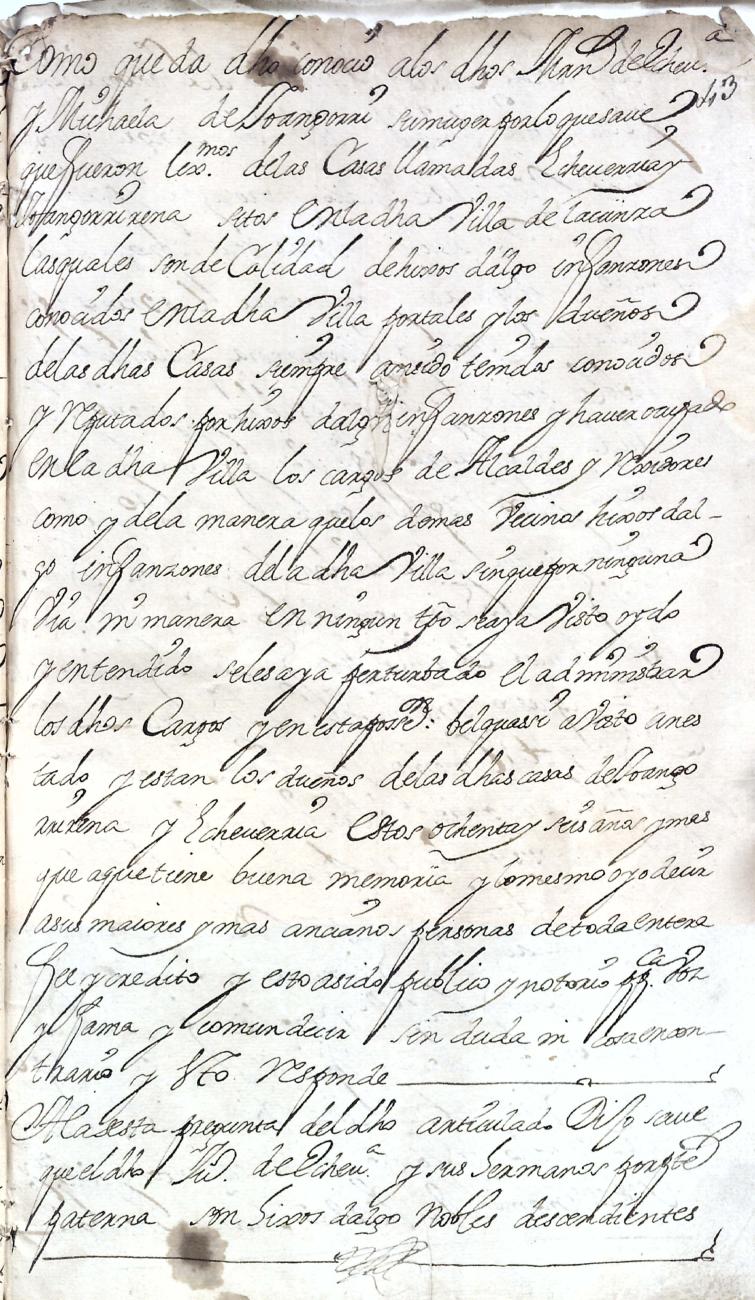 Como queda dho conocio a los dhos Mrn de Echeu.a
43
y Michaela de Iorangorri su muger por lo que saue
que fueron lex.mos de las Casas llamadas Echeuerria y
Iorangorrirena sitos en la dha Villa de lacunza
las quales son de Calidad de hixos dalgo infanzones
conocidos en la dha Villa por tales y los dueños
de las dhas Casas siempre an sido tenidos conocidos
y Reputados por hixos dalgo infanzones y hauer ocupado
en la dha Villa los cargos de Alcaldes y Rexidores
como y de la manera que los demas Vecinos hixos dal-
go infanzones de la dha Villa sin que por ninguna
Via ni manera en ningun tpo se aya Visto oydo
y entendido se les aya perturbado el administrar
los dhos Cargos y en esta posse.on: bel quassi a Visto an es
tado y estan los dueños de las dhas casas de Iorango
rrirena y Echeuerria estos ochenta y seis años y mas
que a que tiene buena memoria y lo mesmo oyo decir
a sus maiores y mas ancianos personas de toda entera
fee y credito y esto a sido publico y notorio pp.ca Voz
y fama y comun decir sin duda ni cosa en con-
trario y esto Responde
A la sesta pregunta del dho articulado Dijo saue
que el dho Ju.o de Echeu.a y sus hermanos por pte
paterna son hixos dalgo Nobles descendientes